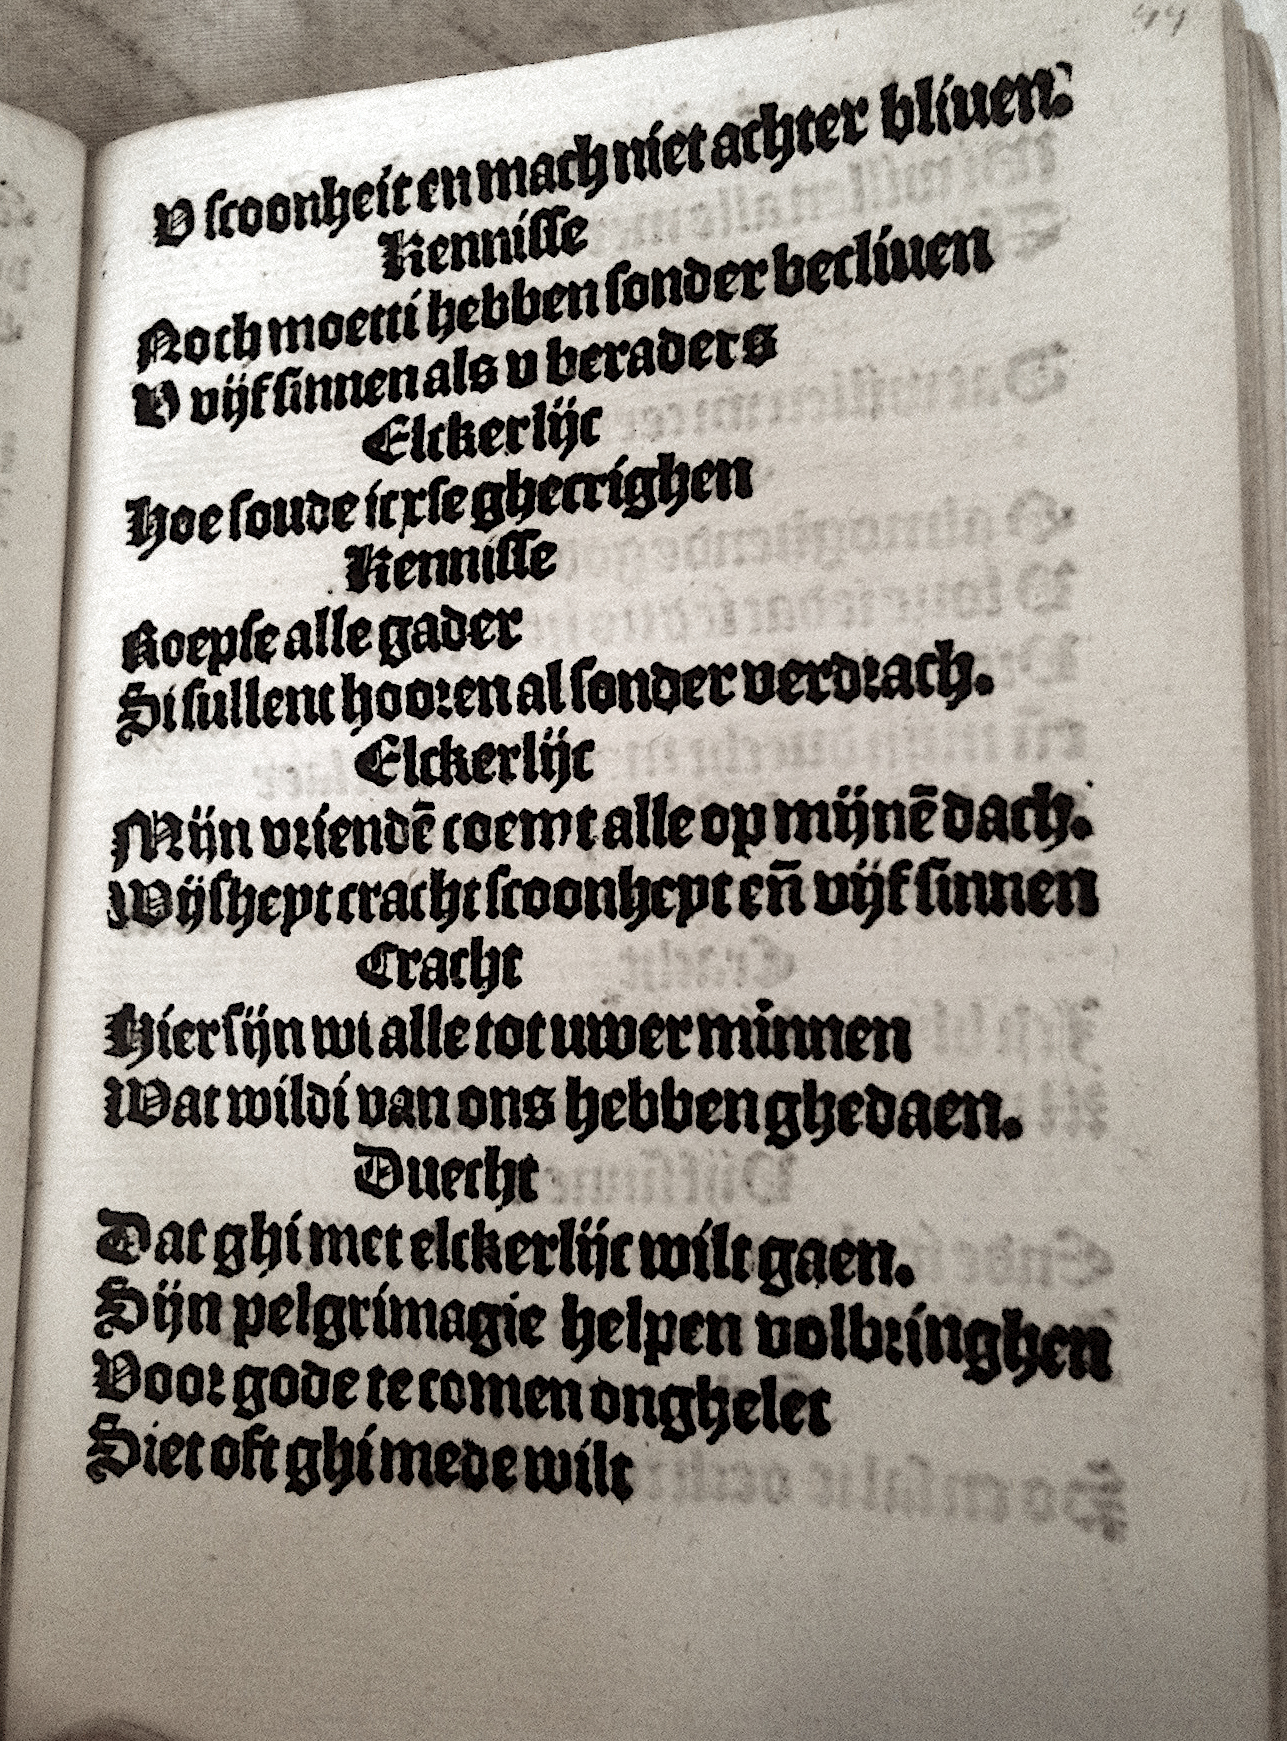 44
V scoonheit en mach niet achter bliuen.
Kennisse
Noch moetti hebben sonder becliuen
V vijf sinnen als v beraders
Elckerlijc
Hoe soude icxse ghecrighen
Kennisse
Roepse alle gader
Si sullent hooren al sonder verdrach.
Elckerlijc
Mijn vriendē coemt alle op mijnē dach.
Wijsheyt cracht scoonheyt eñ vijf sinnen
Cracht
Hier sijn wi alle tot uwer minnen
Wat wildi van ons hebben ghedaen.
Duecht
Dat ghi met elckerlijc wilt gaen.
Sijn pelgrimagie helpen volbringhen
Voor gode te comen onghelet
Siet oft ghi mede wilt